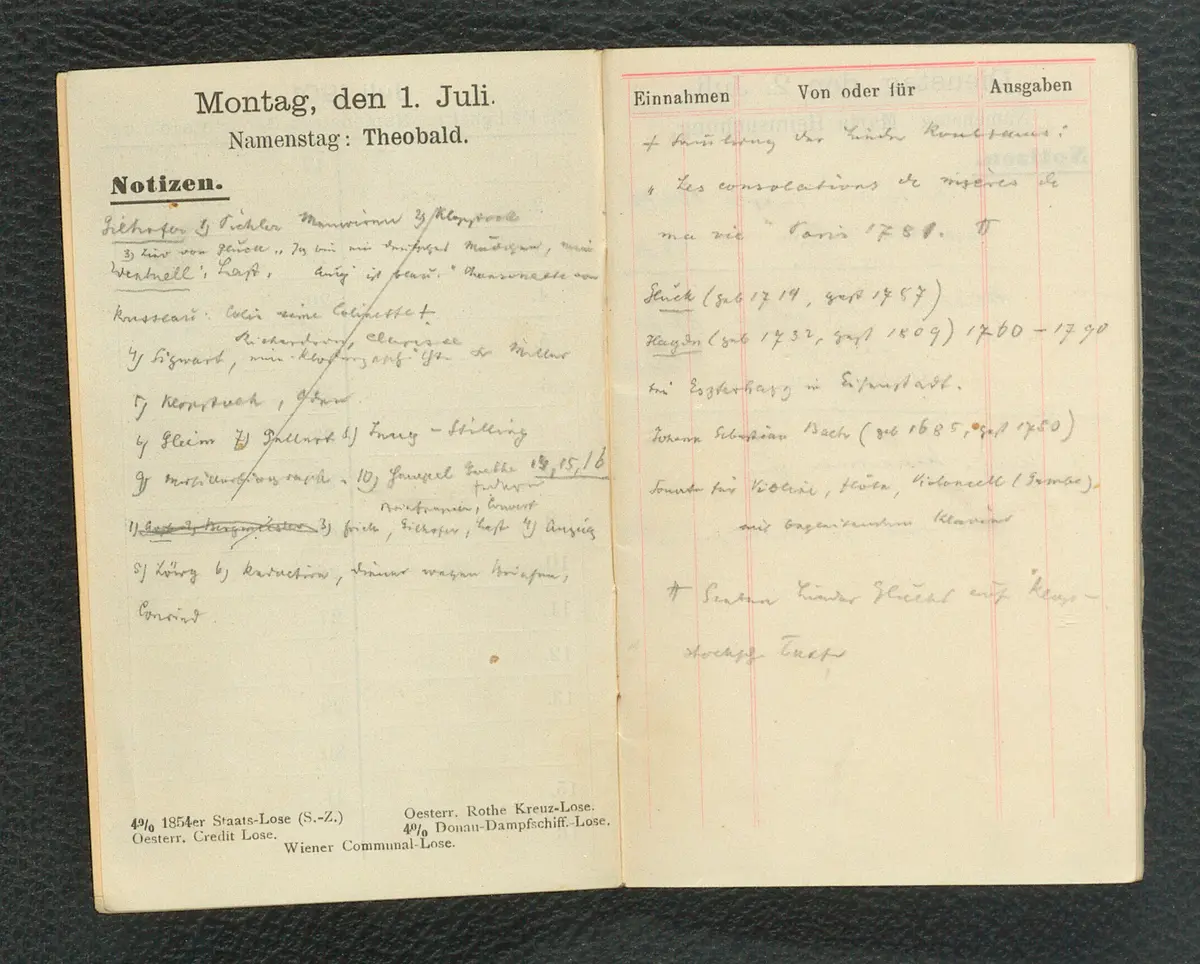 Montag, den 1. Juli.
Namenstag: Theobald.
Notizen.
Gilhofer 1) Pichler Memoiren 2) Klopstock
3) Lied von Gluck „Ich bin ein deutsches Mädchen, mein
Last, Aug ist blau." Chansonette von
Rousseau: Colin seine Colinette +
Richardson, Clarisse
4) Sigwart, eine Klostergeschichte v Miller
5) Klopstock, Oden
6) Gleim 7) Gellert 8) Jung-Stilling
9) 10) Hempel Goethe 15, 16
Federn
Briefpapier, Couvert
1) 3) Frick, Gilhofer, Last 4) Anzug
5) Löwy 6) Redaction, Diener wegen Briefen,
Conried
4% 1854er Staats-Lose (S.-Z.)
Oesterr. Rothe Kreuz-Lose.
Oesterr. Credit Lose.
4% Donau-Dampfschiff.-Lose.
Wiener Communal-Lose.
Einnahmen
Von oder für
Ausgaben
+ Sammlung der Lieder Rousseaus:
„Les consolations de misères de
ma vie" Paris 1781. #
Gluck (geb 1714, gest 1787)
Haydn (geb 1732, gest 1809) 1760 – 1790
bei Eszterhazy in Eisenstadt.
Johann Sebastian Bach (geb 1685, gest 1750)
Sonate für Violine, Flöte, Violoncell (Gambe)
mit begleitendem Klavier
# Sieben Lieder Glucks auf Klop-
stocksche Texte